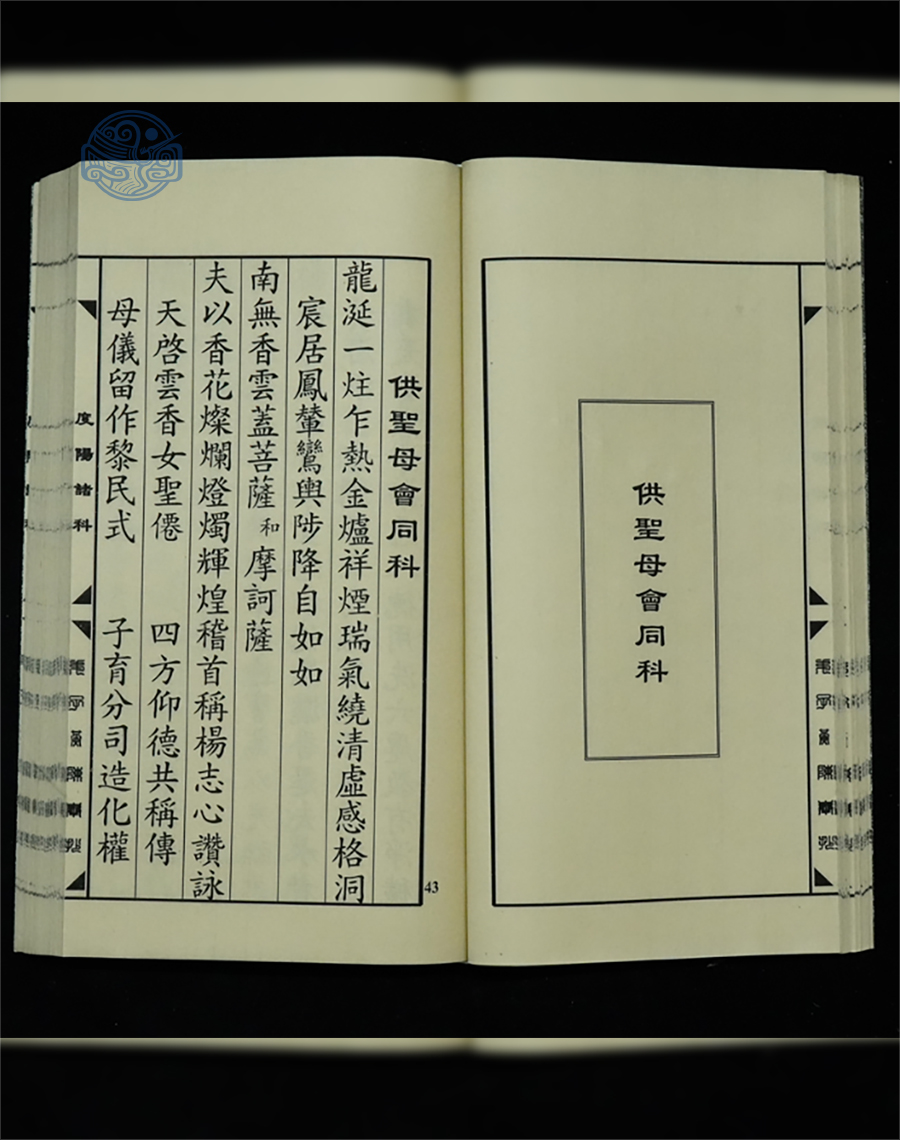 供聖母會同科
供聖母會同科
龍涎一炷乍熱金爐祥煙瑞氣繞清虛感格洞
宸居鳳輦鸞輿陟降自如如
南無香雲蓋菩薩 和 摩訶薩
夫以香花燦爛燈燭輝煌稽首稱楊志心讚詠
天啓雲香女聖僊 四方仰德共稱傳
母儀留作黎民式 子育分司造化權
度陽諸科
43